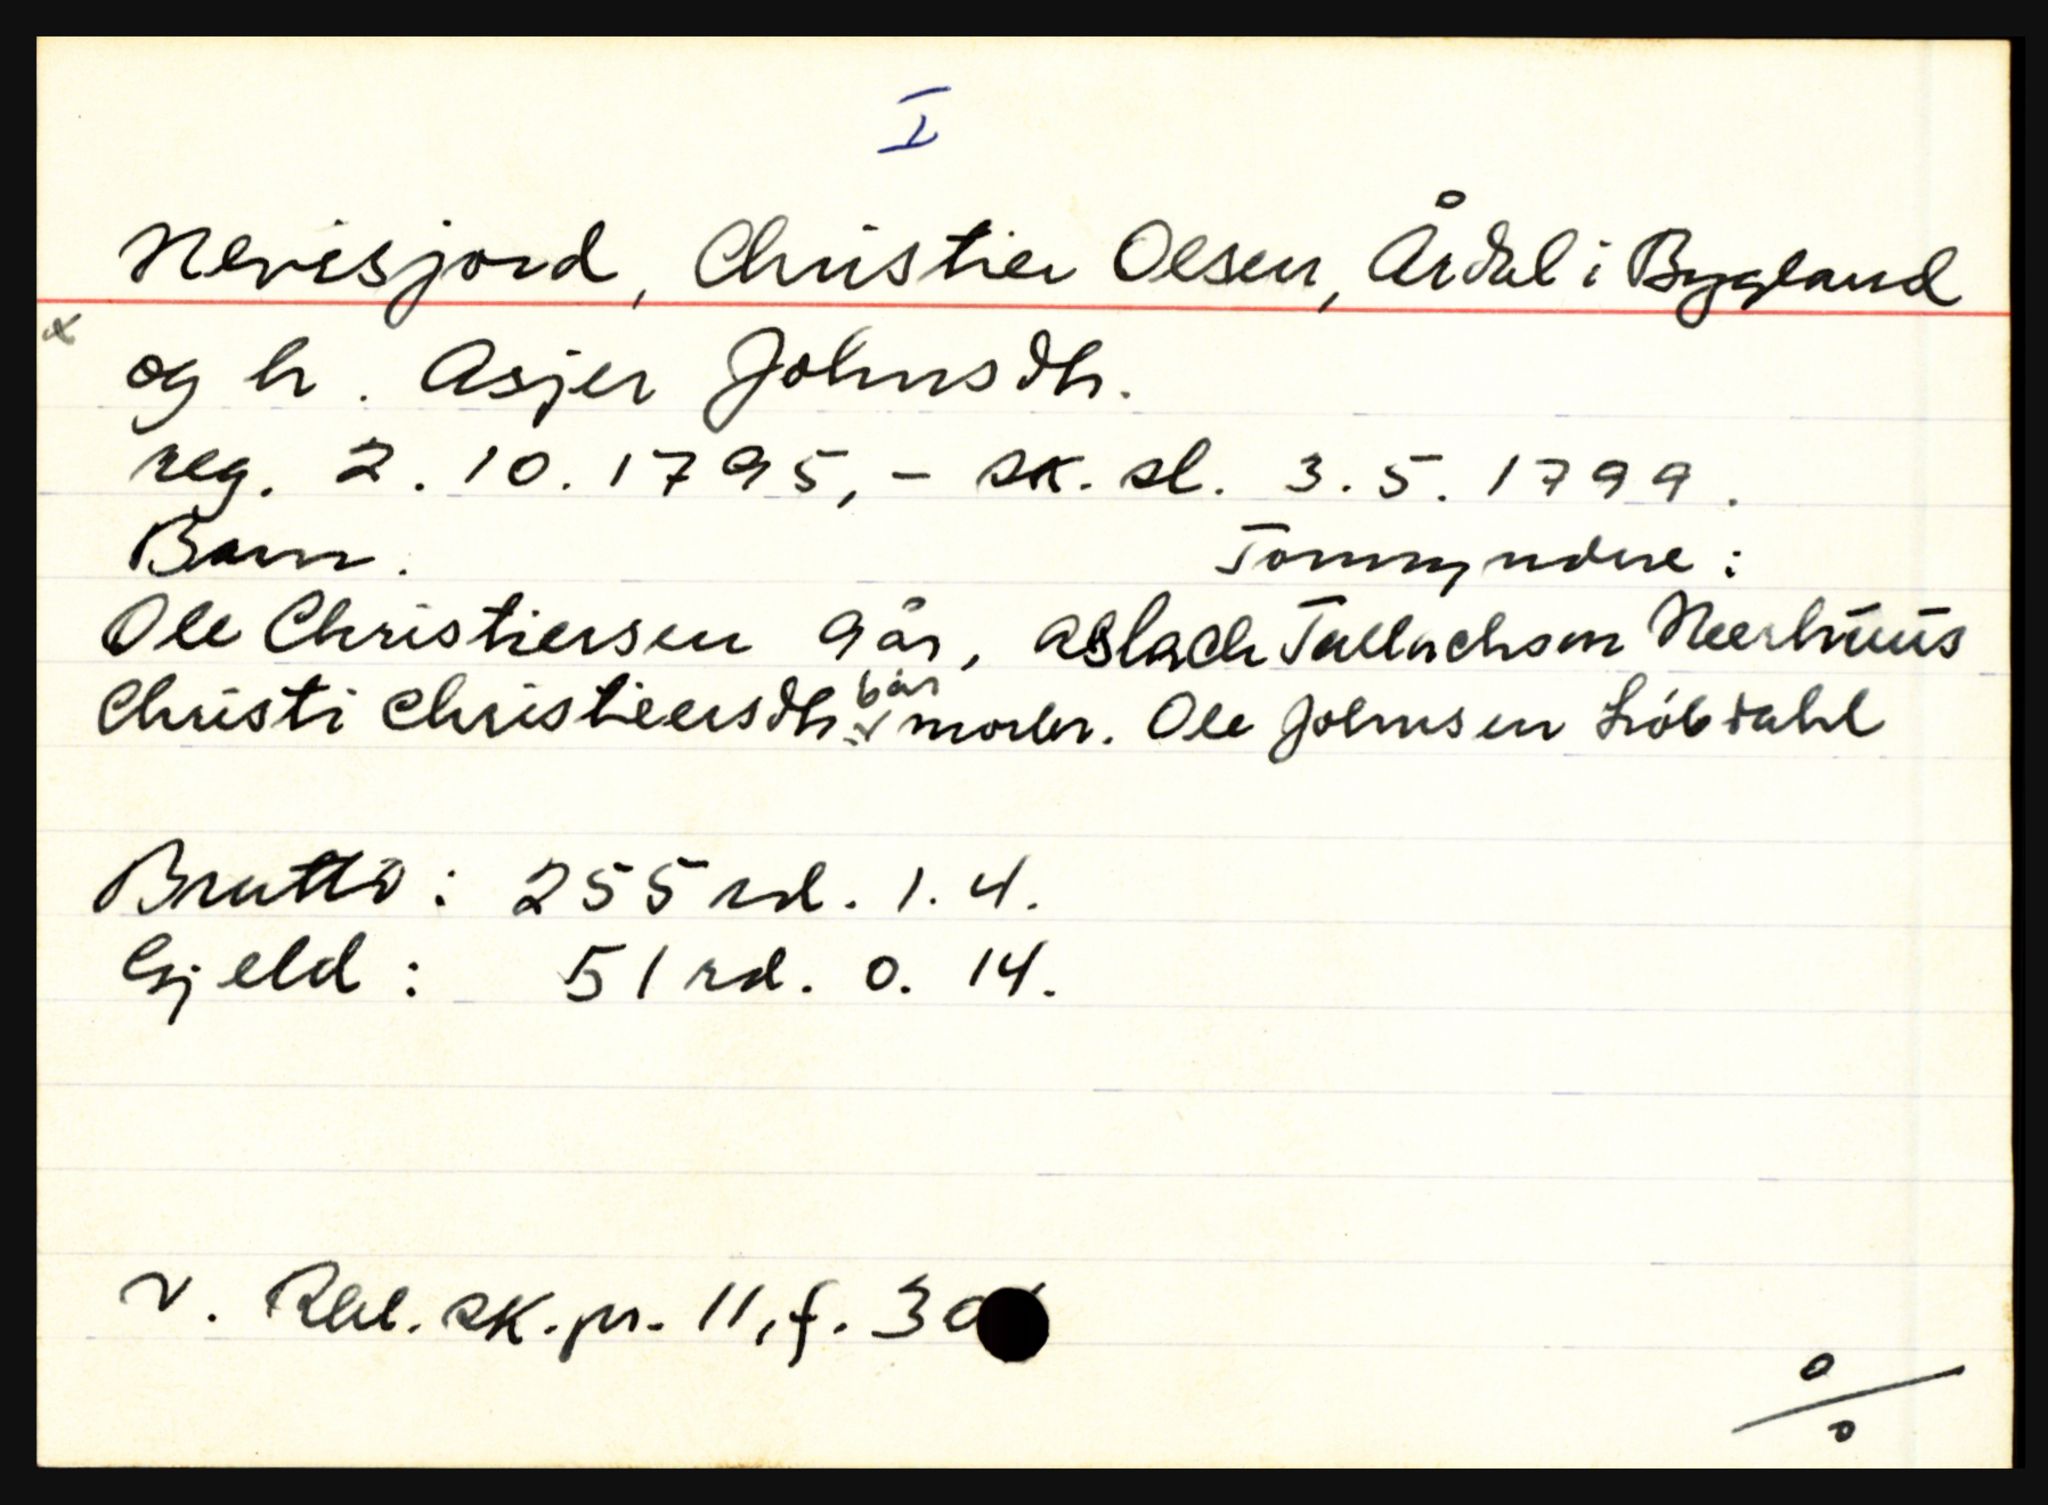 I
Nevisjord, Christier Olsen, Årdal i Bygland
x
og h. Asjer Johnsdh.
reg. 2.10.1795, - sk. sl. 3.5.1799.
Barn. Formyndere:
Ole Christiersen 9 år, Aslach Tallachsen Neerhuus
Christi Christieersdh. 6 år morbr. Ole Johnsen Liöbdahl
Brutto: 255 rd. 1. 4.
Gjeld: 51 rd. 0. 14.
v. Rbl. sk. pr. 11, f.
o/o